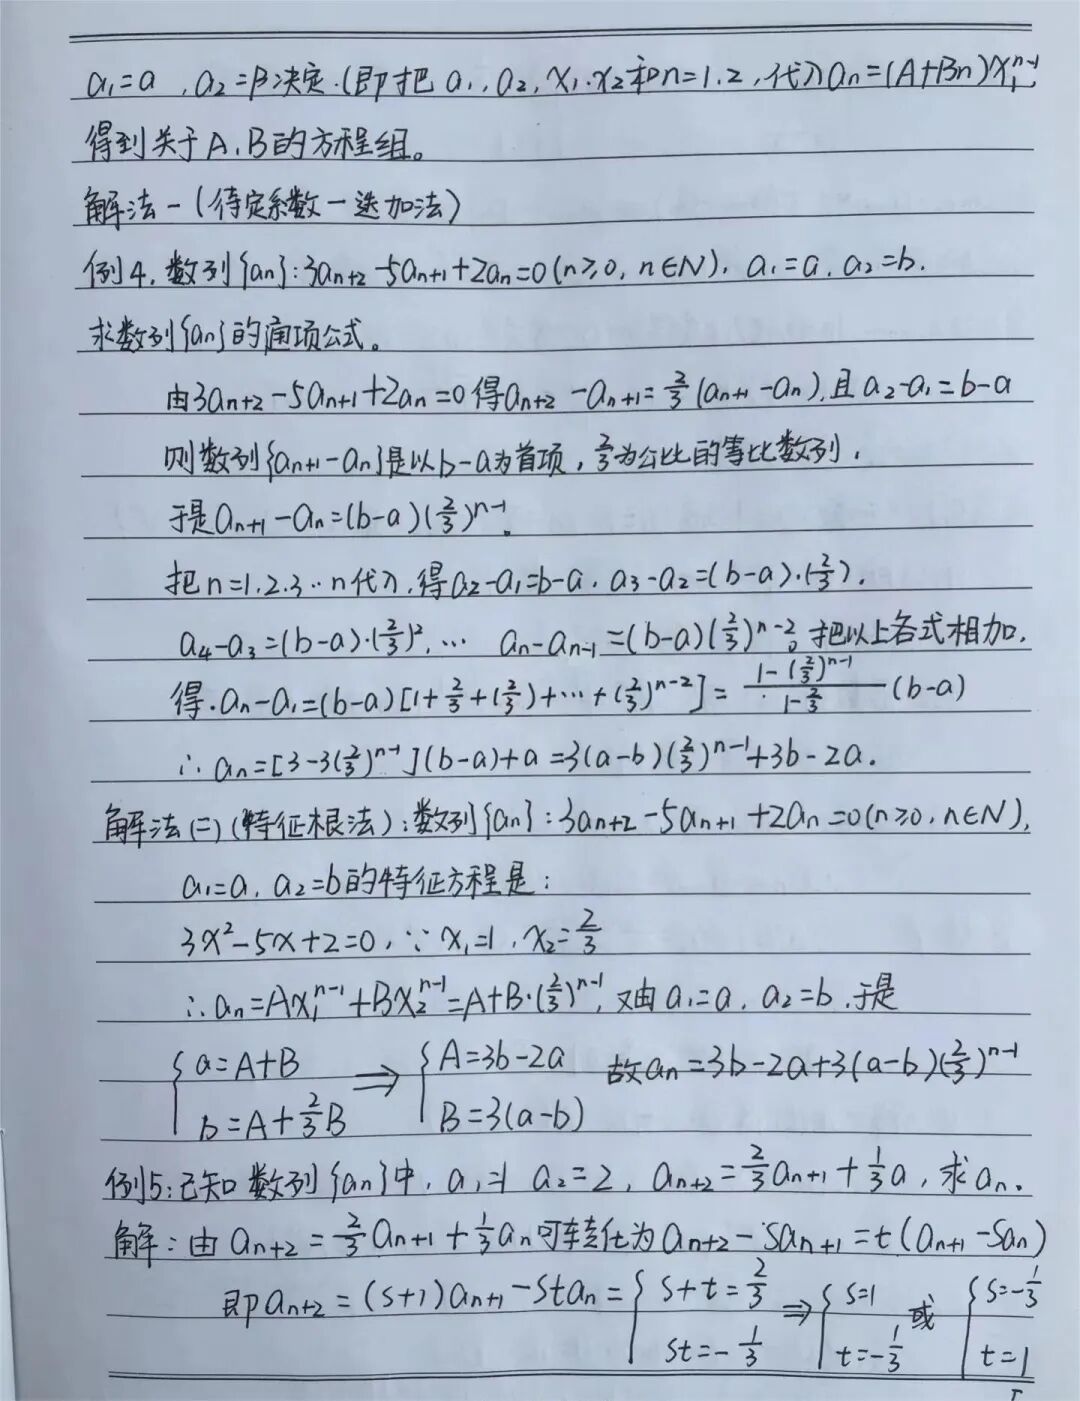 a₁=a, a₂=β决定.(即把a₁, a₂, x₁, x₂和n=1.2, 代入an=(A+Bn)x₁^{n-1}
得到关于A.B的方程组。
解法一(待定系数一迭加法)
例4.数列{an}:3a_{n+2}-5a_{n+1}+2an=0(n≥0, n∈N), a₁=a, a₂=b.
求数列{an}的通项公式。
由3a_{n+2}-5a_{n+1}+2an=0得a_{n+2}-a_{n+1}=2/3(a_{n+1}-an),且a₂-a₁=b-a
则数列{a_{n+1}-an}是以b-a为首项, 2/3为公比的等比数列,
于是a_{n+1}-an=(b-a)(2/3)^{n-1}。
把n=1.2.3…n代入,得a₂-a₁=b-a. a₃-a₂=(b-a)·(2/3),
a₄-a₃=(b-a)·(2/3)²,… an-a_{n-1}=(b-a)(2/3)^{n-2}。把以上各式相加,
得.an-a₁=(b-a)[1+2/3+(2/3)+…+(2/3)^{n-2}]=(1-(2/3)^{n-1})/(1-2/3)(b-a)
∴an=[3-3(2/3)^{n-1}](b-a)+a=3(a-b)(2/3)^{n-1}+3b-2a.
解法(二)(特征根法):数列{an}:3a_{n+2}-5a_{n+1}+2an=0(n≥0, n∈N),
a₁=a, a₂=b的特征方程是:
3x²-5x+2=0,∵x₁=1, x₂=2/3
∴an=Ax₁^{n-1}+Bx₂^{n-1}=A+B·(2/3)^{n-1},又由a₁=a, a₂=b,于是
{a=A+B b=A+2/3B ⇒ {A=3b-2a B=3(a-b) 故an=3b-2a+3(a-b)(2/3)^{n-1}
例5:已知数列{an}中, a₁=1 a₂=2, a_{n+2}=2/3a_{n+1}+1/3a,求an.
解:由a_{n+2}=2/3a_{n+1}+1/3an可转化为a_{n+2}-Sa_{n+1}=t(a_{n+1}-San)
即a_{n+2}=(s+1)a_{n+1}-Stan={s+t=2/3 st=-1/3 ⇒{s=1 t=-1/3 或 {s=-1/3 t=1